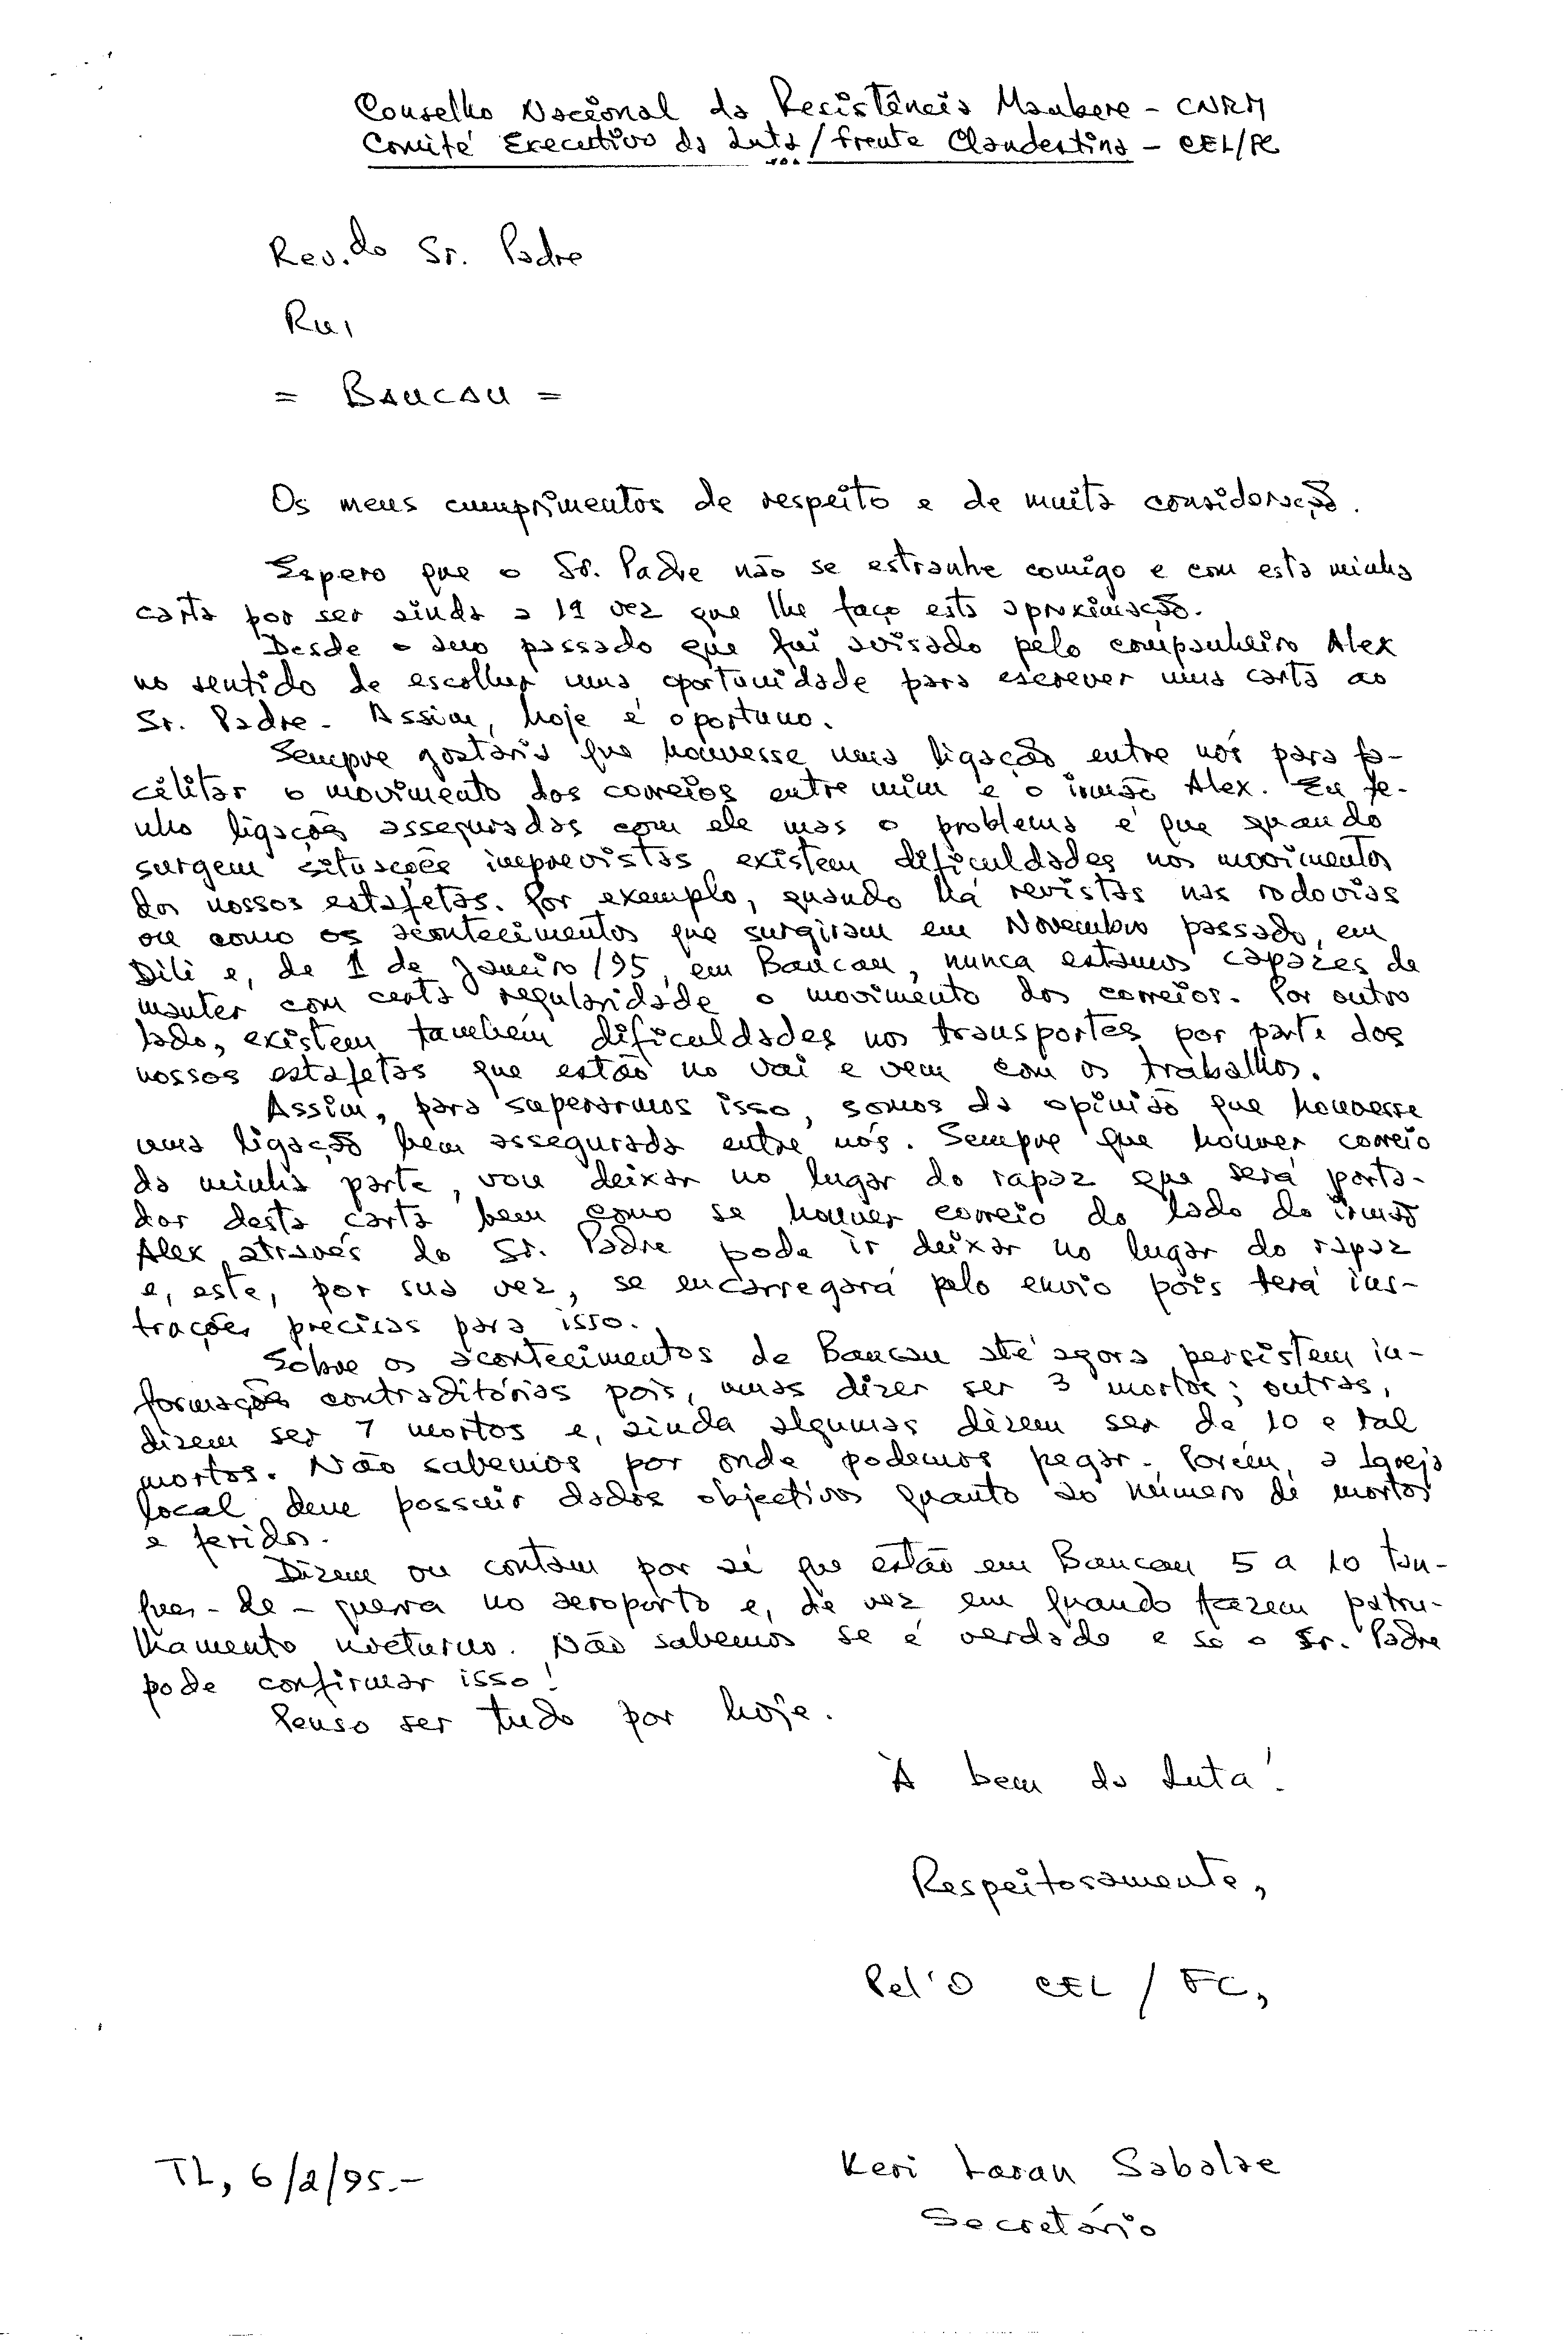 Conselho Nacional da Resistência Maubere - CNRM
Comité Executivo da Luta / Frente Clandestina - CEL/FC
Rev.do Sr. Padre
Rui
= BAUCAU =
Os meus cumprimentos de respeito e de muita consideração.
Espero que o Sr. Padre não se estranhe comigo e com esta minha
carta por ser ainda a 1ª vez que lhe faço esta aproximação.
Desde o ano passado que fui avisado pelo companheiro Alex
no sentido de escolher uma oportunidade para escrever uma carta ao
Sr. Padre. Assim, hoje é oportuno.
Sempre gostaria que houvesse uma ligação entre nós para fa-
cilitar o movimento dos correios entre mim e o irmão Alex. Eu te-
nho ligações asseguradas com ele mas o problema é que quando
surgem situações imprevistas, existem dificuldades nos movimentos
dos nossos estafetas. Por exemplo, quando há revistas nas rodovias
ou como os acontecimentos que surgiram em Novembro passado, em
Dili e, de 1 de Janeiro/95, em Baucau, nunca estamos capazes de
manter com certa regularidade o movimento dos correios. Por outro
lado, existem também dificuldades nos transportes por parte dos
nossos estafetas que estão no vai e vem com os trabalhos.
Assim, para superarmos isso, somos da opinião que houvesse
uma ligação bem assegurada entre nós. Sempre que houver correio
da minha parte, vou deixar no lugar do rapaz que será porta-
dor desta carta bem como se houver correio do lado do irmão
Alex através do Sr. Padre pode ir deixar no lugar do rapaz
e, este, por sua vez, se encarregará pelo envio pois terá ins-
truções precisas para isso.
Sobre os acontecimentos de Baucau até agora persistem in-
formações contraditórias pois, umas dizer ser 3 mortos; outras,
dizem ser 7 mortos e, ainda algumas dizem ser de 10 e tal
mortos. Não sabemos por onde podemos pegar. Porém, a Igreja
local deve possuir dados objectivos quanto ao número de mortos
e feridos.
Dizem ou contam por aí que estão em Baucau 5 a 10 tan-
ques-de-guerra no aeroporto e, de vez em quando fazem patru-
lhamento nocturno. Não sabemos se é verdade e só o Sr. Padre
pode confirmar isso!
Penso ser tudo por hoje.
À bem da Luta!
Respeitosamente,
Pel'O CEL / FC,
TL, 6/2/95.-
Keri Laran Sabalae
Secretário